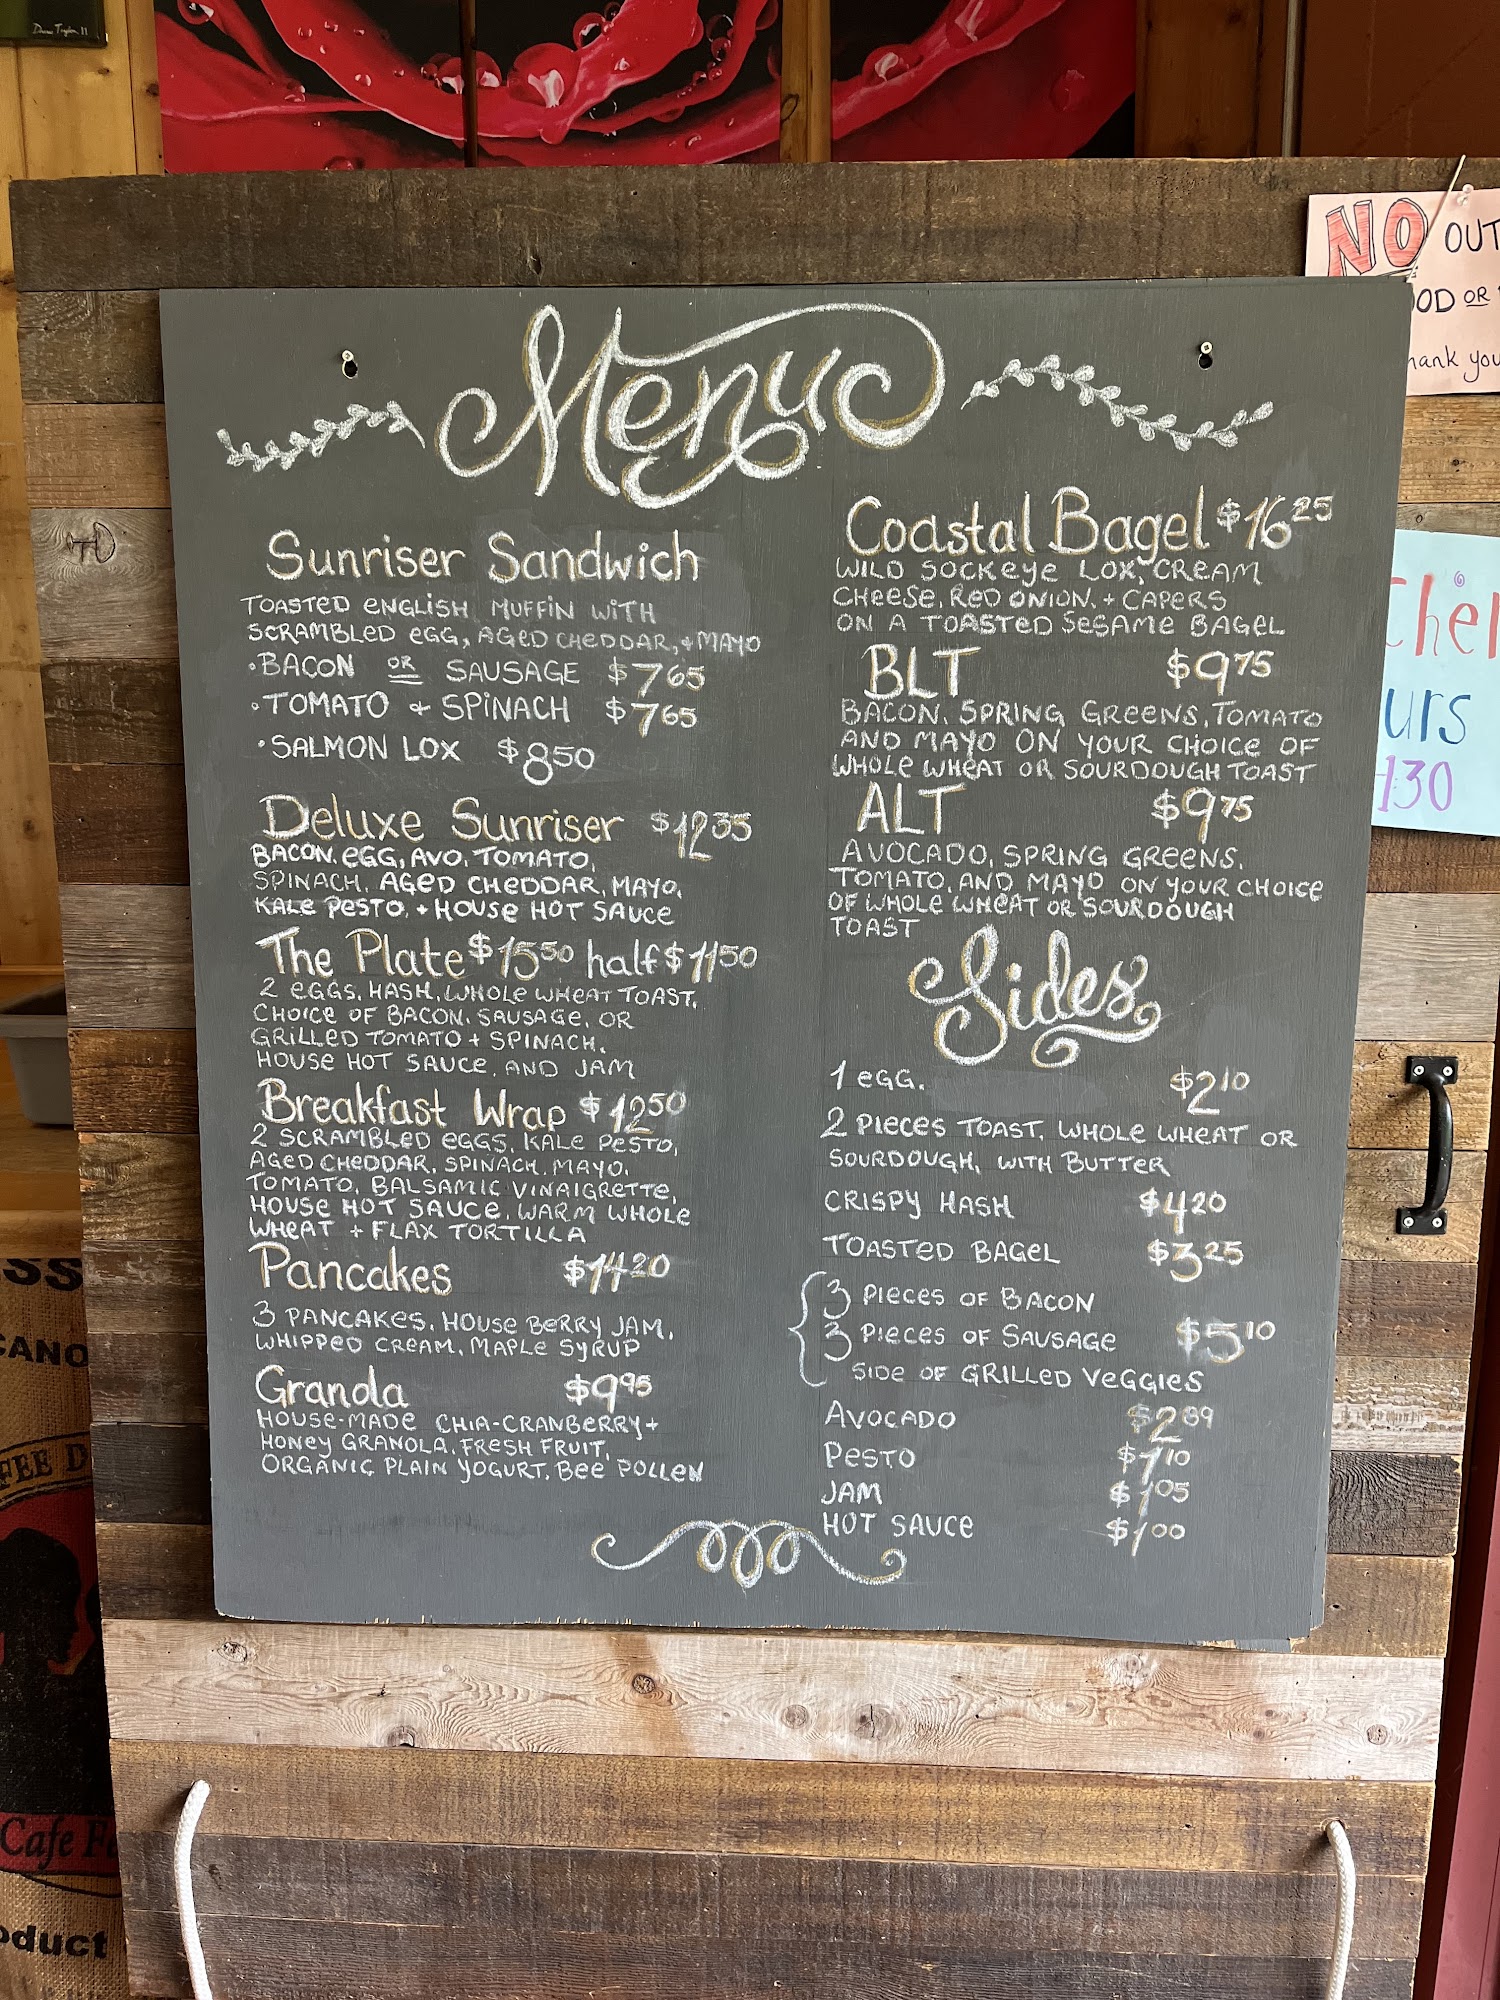 Dane Tryton 11
NO OUT
OOD OR
hank you
Menu
Sunriser Sandwich
TOASTED ENGLISH MUFFIN WITH
SCRAMBLED EGG, AGED CHEDDAR, + MAYO
• BACON OR SAUSAGE $7.65
• TOMATO + SPINACH $7.65
• SALMON LOX $8.50
Deluxe Sunriser $12.35
BACON, EGG, AVO, TOMATO,
SPINACH, AGED CHEDDAR, MAYO,
KALE PESTO, + HOUSE HOT SAUCE
The Plate $15.50 half $11.50
2 EGGS, HASH, WHOLE WHEAT TOAST,
CHOICE OF BACON, SAUSAGE, OR
GRILLED TOMATO + SPINACH,
HOUSE HOT SAUCE, AND JAM
Breakfast Wrap $12.50
2 SCRAMBLED EGGS, KALE PESTO,
AGED CHEDDAR, SPINACH, MAYO,
TOMATO, BALSAMIC VINAIGRETTE,
HOUSE HOT SAUCE, WARM WHOLE
WHEAT + FLAX TORTILLA
Pancakes $14.20
3 PANCAKES, HOUSE BERRY JAM,
WHIPPED CREAM, MAPLE SYRUP
Granola $9.95
HOUSE-MADE CHIA-CRANBERRY +
HONEY GRANOLA, FRESH FRUIT,
ORGANIC PLAIN YOGURT, BEE POLLEN
Coastal Bagel $16.25
WILD SOCKEYE LOX, CREAM
CHEESE, RED ONION, + CAPERS
ON A TOASTED SESAME BAGEL
BLT $9.75
BACON, SPRING GREENS, TOMATO
AND MAYO ON YOUR CHOICE OF
WHOLE WHEAT OR SOURDOUGH TOAST
ALT $9.75
AVOCADO, SPRING GREENS,
TOMATO, AND MAYO ON YOUR CHOICE
OF WHOLE WHEAT OR SOURDOUGH
TOAST
Sides
1 EGG. $2.10
2 PIECES TOAST, WHOLE WHEAT OR
SOURDOUGH, WITH BUTTER
CRISPY HASH $4.20
TOASTED BAGEL $3.25
3 PIECES OF BACON
3 PIECES OF SAUSAGE $5.10
SIDE OF GRILLED VEGGIES
AVOCADO $2.89
PESTO $1.10
JAM $1.05
HOT SAUCE $1.00
chen
urs
130
SS
CANO
FEE D
Cafe F
oduct